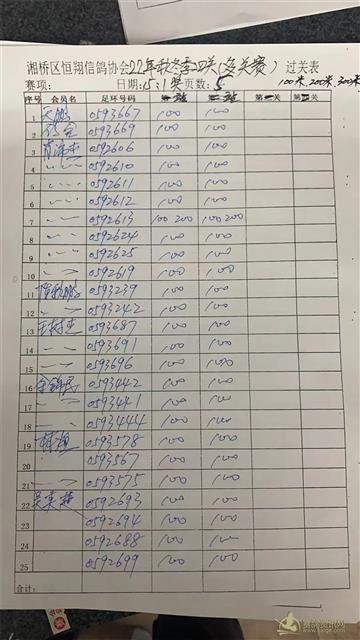 湘桥区恒翔信鸽协会22年秋冬季四关(多关赛)过关表
赛项: 日期:15:1奖 页数:5 100米,200米,300米
序号 会员名 足环号码 第一站 第二站 第三关 第四关
1 天鹏 0593667 100 100
2 0593669 100 100
3 0592606 100 100
4 〃 〃 0592610 100 100
5 〃 〃 0592611 100 100
6 〃 〃 0592612 100 100
7 〃 〃 0592613 100 200 100 200
8 〃 〃 0592624 100 100
9 〃 〃 0592625 100 100
10 〃 〃 0592619 100 100
11 0593239 100 100
12 〃 〃 0593242 100 100
13 0593687 100 100
14 〃 〃 0593691 100 100
15 〃 〃 0593696 100 100
16 0593442 100 100
17 〃 〃 0593441 100 100
18 〃 〃 0593444 100 100
19 0593578 100 100
20 〃 〃 0593567 100 100
21 〃 〃 0593575 100 100
22 0592693 100 100
23 0592694 100 100
24 0592688 100 100
25 0592699 100 100
合计: